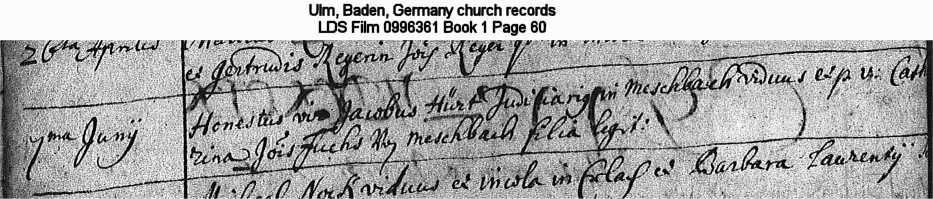 Ulm, Baden, Germany church records
LDS Film 0996361 Book 1 Page 60
26ta Aprilis
et Gertrudis Regerin Jois Reger in
7ma Junij
Honestus vir Jacobus Hürt Judiciarius in Meschbach viduus et p. v. Cath
rina Jois Fuchs Meschbach filia legit:
viduus et incola in et Barbara Laurentij